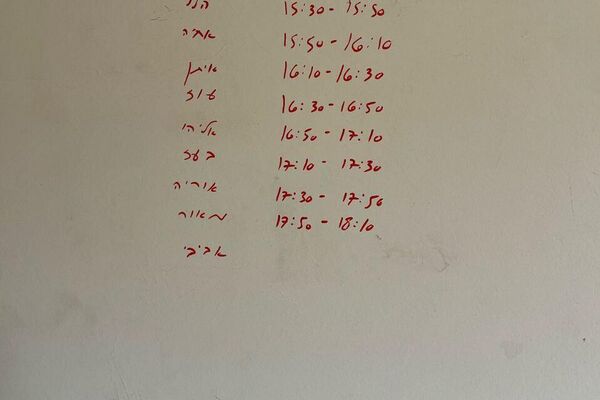 הלל 15:30 - 15:50
אריה 15:50 - 16:10
איתן 16:10 - 16:30
עוז 16:30 - 16:50
אליהו 16:50 - 17:10
בעז 17:10 - 17:30
אוריה 17:30 - 17:50
מאור 17:50 - 18:10
אביבי